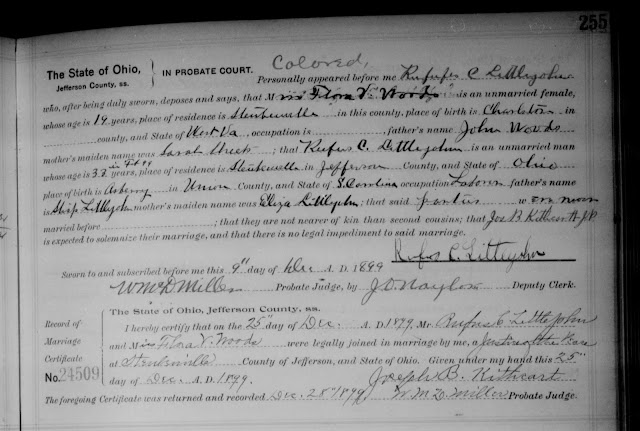 255
Colored,
The State of Ohio,
Jefferson County, ss.
IN PROBATE COURT.
Personally appeared before me Rufus C Littlejohn
who, after being duly sworn, deposes and says, that Miss Flora V. Woods is an unmarried female
whose age is 19 years, place of residence is Steubenville in this county, place of birth is Charleston in
county, and State of West Va, occupation is father's name John Woods
mother's maiden name was Sarah; that Rufus C. Littlejohn is an unmarried man
whose age is 33 years, place of residence is Steubenville in Jefferson County, and State of Ohio
place of birth is Asberry in Union County, and State of S. Carolina occupation Laborer father's name
Littlejohn mother's maiden name was Eliza Littlejohn; that said parties were never
married before ; that they are not nearer of kin than second cousins; that Jos B Kithcart J.P.
is expected to solemnize their marriage, and that there is no legal impediment to said marriage.
Rufus C. Littlejohn
Sworn to and subscribed before me this 9" day of Dec A. D. 1899
W M D Miller Probate Judge, by J. D. Naylor Deputy Clerk.
Record of
Marriage
Certificate
No. 24509
The State of Ohio, Jefferson County, ss.
I hereby certify that on the 25" day of Dec. A. D. 1899, Mr. Rufus C Littlejohn
and Miss Flora V. Woods were legally joined in marriage by me, a Justice of the Peace
at Steubenville County of Jefferson, and State of Ohio. Given under my hand this 25"
day of Dec A. D. 1899.
Joseph B. Kithcart
The foregoing Certificate was returned and recorded Dec. 28" 1899 W. M. D. Miller Probate Judge.